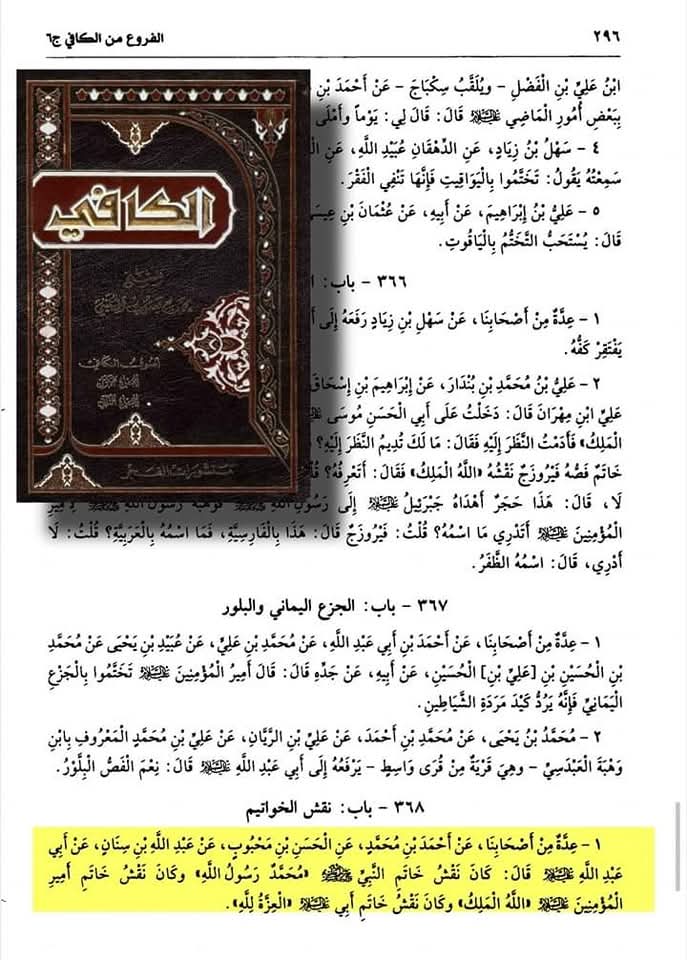 ٢٩٦
الفروع من الكافي ج٦
ابْنُ عَلِيِّ بْنِ الْفَضْلِ - وَيُلَقَّبُ سِكْبَاجَ - عَنْ أَحْمَدَ بْنِ
بِبَعْضِ أُمُورِ الْمَاضِي عليه السلام قَالَ: قَالَ لِي: يَوْماً وأَمْلَى
٤ - سَهْلُ بْنُ زِيَادٍ، عَنِ الدِّهْقَانِ عُبَيْدِ اللَّهِ، عَنِ
سَمِعْتُهُ يَقُولُ: تَخَتَّمُوا بِالْيَوَاقِيتِ فَإِنَّهَا تَنْفِي الْفَقْرَ.
٥ - عَلِيُّ بْنُ إِبْرَاهِيمَ، عَنْ أَبِيهِ، عَنْ عُثْمَانَ بْنِ عِيسَى
قَالَ: يُسْتَحَبُّ التَّخَتُّمُ بِالْيَاقُوتِ.
٣٦٦ - باب:
١ - عِدَّةٌ مِنْ أَصْحَابِنَا، عَنْ سَهْلِ بْنِ زِيَادٍ رَفَعَهُ إِلَى
يَفْتَقِرْ كَفُّهُ.
٢ - عَلِيُّ بْنُ مُحَمَّدِ بْنِ بُنْدَارَ، عَنْ إِبْرَاهِيمَ بْنِ إِسْحَاقَ
عَلِيِّ ابْنِ مِهْرَانَ قَالَ: دَخَلْتُ عَلَى أَبِي الْحَسَنِ مُوسَى
الْمَلِكُ» فَأَدَمْتُ النَّظَرَ إِلَيْهِ فَقَالَ: مَا لَكَ تُدِيمُ النَّظَرَ إِلَيْهِ؟
خَاتَمٌ فَصُّهُ فَيْرُوزَجٌ نَقْشُهُ «اللَّهُ الْمَلِكُ» فَقَالَ: أَتَعْرِفُهُ؟
لَا، قَالَ: هَذَا حَجَرٌ أَهْدَاهُ جَبْرَئِيلُ عليه السلام إِلَى رَسُولِ اللَّهِ صلى الله عليه وآله فَوَهَبَهُ رَسُولُ اللَّهِ صلى الله عليه وآله لِأَمِيرِ
الْمُؤْمِنِينَ عليه السلام أَتَدْرِي مَا اسْمُهُ؟ قُلْتُ: فَيْرُوزَجٌ قَالَ: هَذَا بِالْفَارِسِيَّةِ، فَمَا اسْمُهُ بِالْعَرَبِيَّةِ؟ قُلْتُ: لَا
أَدْرِي، قَالَ: اسْمُهُ الظَّفَرُ.
٣٦٧ - باب: الجزع اليماني والبلور
١ - عِدَّةٌ مِنْ أَصْحَابِنَا، عَنْ أَحْمَدَ بْنِ أَبِي عَبْدِ اللَّهِ، عَنْ مُحَمَّدِ بْنِ عَلِيٍّ، عَنْ عُبَيْدِ بْنِ يَحْيَى عَنْ مُحَمَّدِ
بْنِ الْحُسَيْنِ بْنِ [عَلِيِّ بْنِ] الْحُسَيْنِ، عَنْ أَبِيهِ، عَنْ جَدِّهِ قَالَ: قَالَ أَمِيرُ الْمُؤْمِنِينَ عليه السلام تَخَتَّمُوا بِالْجَزْعِ
الْيَمَانِيِّ فَإِنَّهُ يَرُدُّ كَيْدَ مَرَدَةِ الشَّيَاطِينِ.
٢ - مُحَمَّدُ بْنُ يَحْيَى، عَنْ مُحَمَّدِ بْنِ أَحْمَدَ، عَنْ عَلِيِّ بْنِ الرَّيَّانِ، عَنْ عَلِيِّ بْنِ مُحَمَّدٍ الْمَعْرُوفِ بِابْنِ
وَهْبَةَ الْعَبْدَسِيِّ - وهِيَ قَرْيَةٌ مِنْ قُرَى وَاسِطٍ - يَرْفَعُهُ إِلَى أَبِي عَبْدِ اللَّهِ عليه السلام قَالَ: نِعْمَ الْفَصُّ الْبِلَّوْرُ.
٣٦٨ - باب: نقش الخواتيم
١ - عِدَّةٌ مِنْ أَصْحَابِنَا، عَنْ أَحْمَدَ بْنِ مُحَمَّدٍ، عَنِ الْحَسَنِ بْنِ مَحْبُوبٍ، عَنْ عَبْدِ اللَّهِ بْنِ سِنَانٍ، عَنْ أَبِي
عَبْدِ اللَّهِ عليه السلام قَالَ: كَانَ نَقْشُ خَاتَمِ النَّبِيِّ صلى الله عليه وآله «مُحَمَّدٌ رَسُولُ اللَّهِ» وكَانَ نَقْشُ خَاتَمِ أَمِيرِ
الْمُؤْمِنِينَ عليه السلام «اللَّهُ الْمَلِكُ» وكَانَ نَقْشُ خَاتَمِ أَبِي عليه السلام «الْعِزَّةُ لِلَّهِ».
الكافي
منشورات الفجر